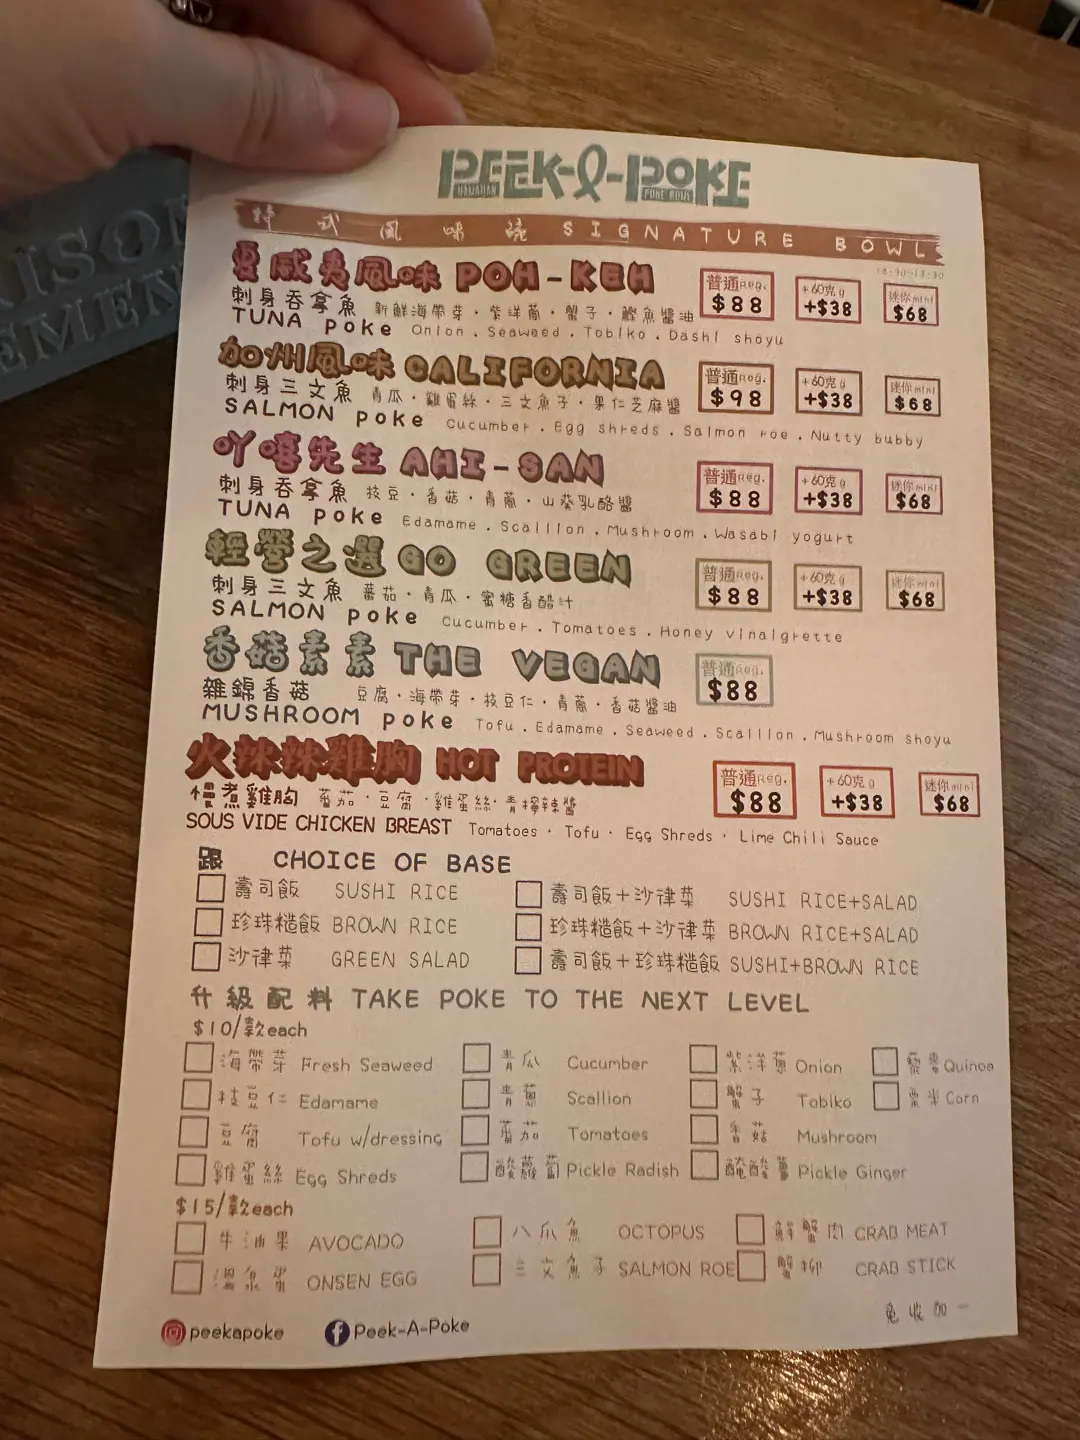 PEEK-A-POKE
HAWAIIAN POKE BOWL
特式風味碗 SIGNATURE BOWL
夏威夷風味 POH-KEH 普通Reg. $88 +60克g +$38 迷你mini $68
刺身吞拿魚 新鮮海帶芽・紫洋蔥・蟹子・鰹魚醬油
TUNA poke Onion . Seaweed . Tobiko . Dashi shoyu
加州風味 CALIFORNIA 普通Reg. $98 +60克g +$38 迷你mini $68
刺身三文魚 青瓜・雞蛋絲・三文魚子・果仁芝麻醬
SALMON poke Cucumber . Egg shreds . Salmon roe . Nutty bubby
吖嘻先生 AHI-SAN 普通Reg. $88 +60克g +$38 迷你mini $68
刺身吞拿魚 枝豆・香菇・青蔥・山葵乳酪醬
TUNA poke Edamame . Scallion . Mushroom . Wasabi yogurt
輕營之選 GO GREEN 普通Reg. $88 +60克g +$38 迷你mini $68
刺身三文魚 蕃茄・青瓜・蜜糖香醋汁
SALMON poke Cucumber . Tomatoes . Honey vinaigrette
香菇素素 THE VEGAN 普通Reg. $88
雜錦香菇 豆腐・海帶芽・枝豆仁・青蔥・香菇醬油
MUSHROOM poke Tofu . Edamame . Seaweed . Scallion . Mushroom shoyu
火辣辣雞胸 HOT PROTEIN 普通Reg. $88 +60克g +$38 迷你mini $68
慢煮雞胸 蕃茄・豆腐・雞蛋絲・青檸辣醬
SOUS VIDE CHICKEN BREAST Tomatoes · Tofu · Egg Shreds · Lime Chili Sauce
跟 CHOICE OF BASE
壽司飯 SUSHI RICE 壽司飯+沙律菜 SUSHI RICE+SALAD
珍珠糙飯 BROWN RICE 珍珠糙飯+沙律菜 BROWN RICE+SALAD
沙律菜 GREEN SALAD 壽司飯+珍珠糙飯 SUSHI+BROWN RICE
升級配料 TAKE POKE TO THE NEXT LEVEL
$10/款each
海帶芽 Fresh Seaweed 青瓜 Cucumber 紫洋蔥 Onion 藜麥 Quinoa
枝豆仁 Edamame 青蔥 Scallion 蟹子 Tobiko 粟米 Corn
豆腐 Tofu w/dressing 蕃茄 Tomatoes 香菇 Mushroom
雞蛋絲 Egg Shreds 酸蘿蔔 Pickle Radish 醃酸薑 Pickle Ginger
$15/款each
牛油果 AVOCADO 八爪魚 OCTOPUS 鮮蟹肉 CRAB MEAT
溫泉蛋 ONSEN EGG 三文魚子 SALMON ROE 蟹柳 CRAB STICK
免收加一
peekapoke Peek-A-Poke